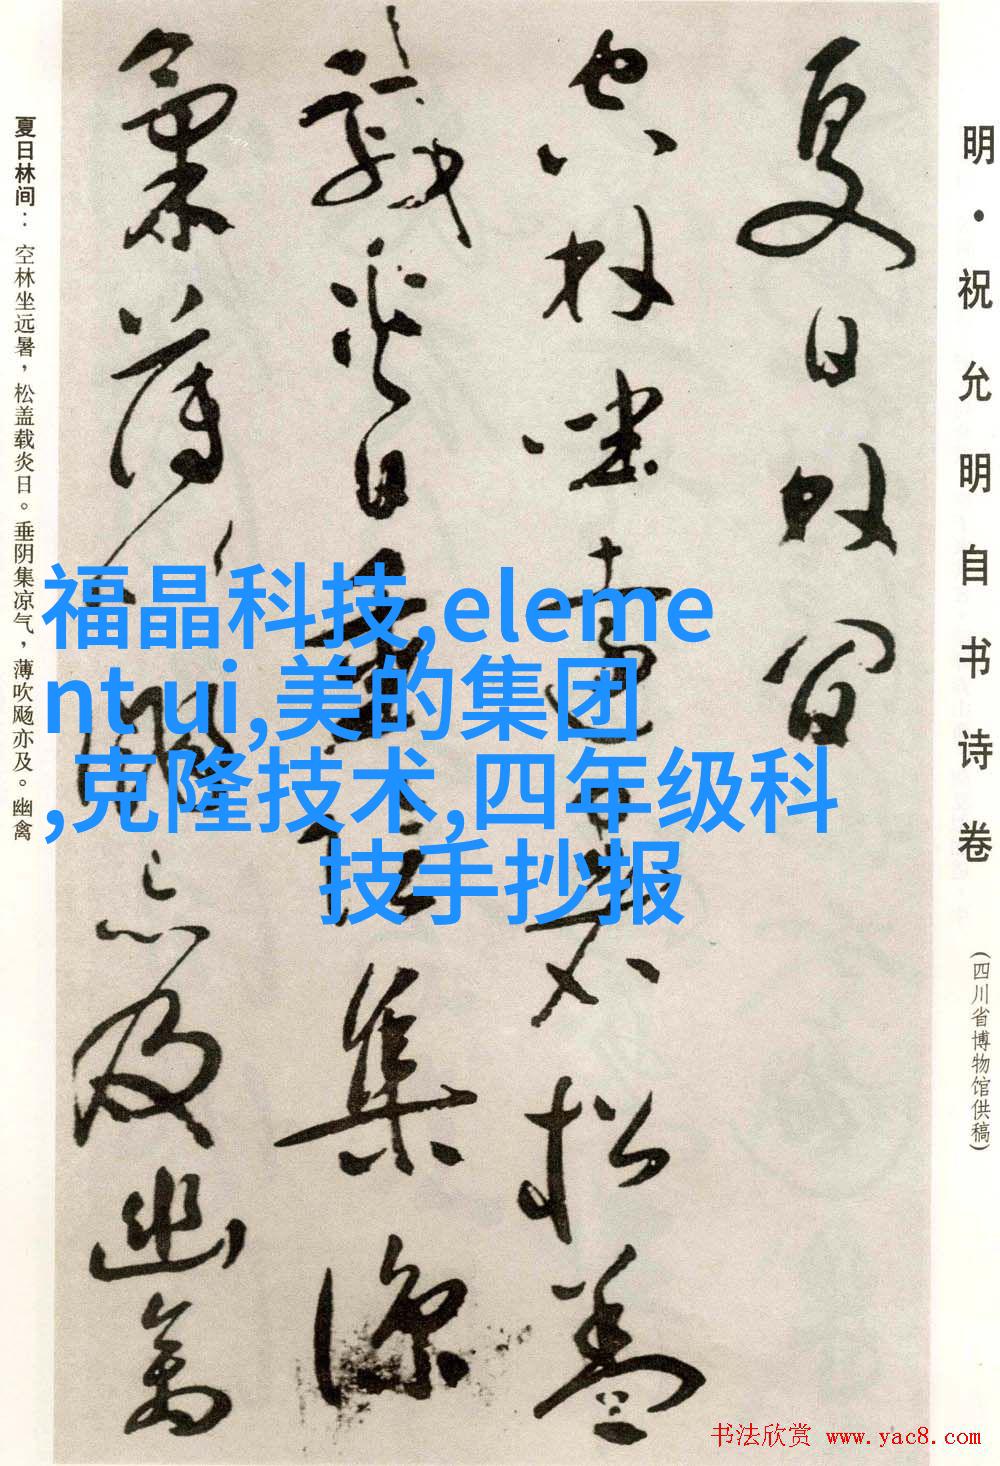 明·祝允明自书诗卷
(四川省博物馆供稿)
夏日林间
空林坐远暑不松盖
载炎日垂阴集凉
气薄吹飏亦及幽禽
夏日林间：空林坐远暑，松盖载炎日。垂阴集凉气，薄吹飏亦及。幽禽
福晶科技,eleme
nt ui,美的集团
,克隆技术,四年级科
技手抄报
书法欣赏 www.yac8.com